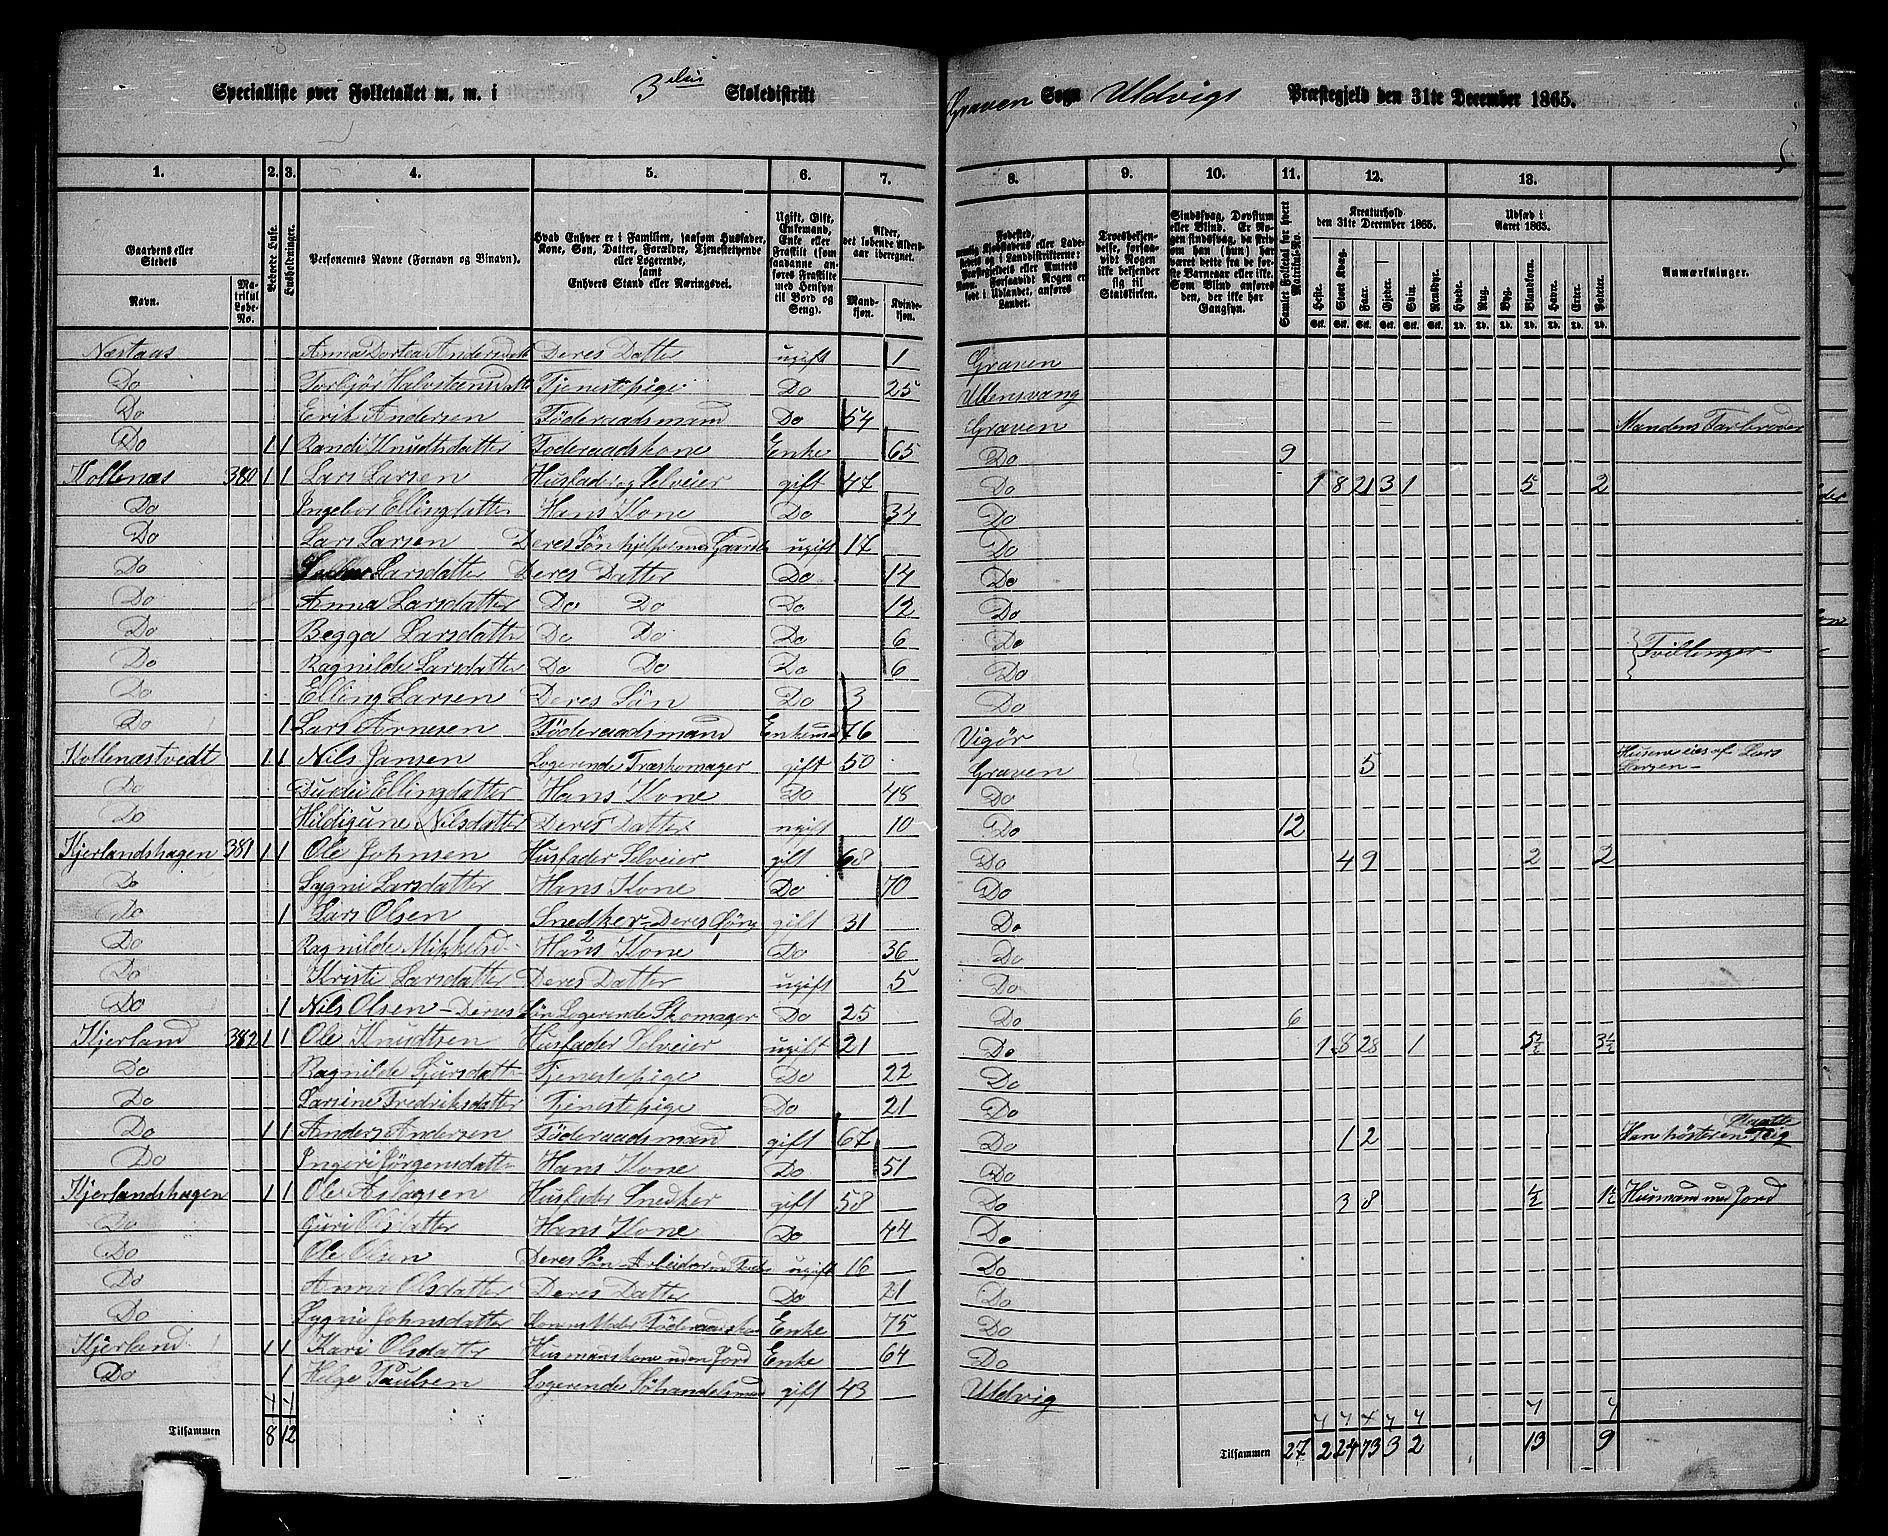 Specialliste over Folketallet m. m. i 3die Skoledistrikt Graven Sogn Uldvigs Præstegjeld den 31te December 1865.
1. 2. 3. 4. 5. 6. 7. 8. 9. 10. 11. 12. 13.
Gaardens eller Stedets
Navn.
Matrikul Løbe-No.
Beboede Huse.
Husholdninger.
Personernes Navne (Fornavn og Binavn).
Hvad Enhver er i Familien, saasom Husfader, Kone, Søn, Datter, Forældre, Tjenestetyende eller Logerende, samt Enhvers Stand eller Næringsvei.
Ugift, Gift, Enkemand, Enke eller Fraskilt (som saadanne anføres Fraskilte med Hensyn til Bord og Seng).
Alder, det løbende Alders-aar iberegnet.
Mand-kjøn.
Kvinde-kjøn.
Troesbekjendelse, forsaavidt Nogen ikke bekjender sig til Statskirken.
Samlet Folketal for hvert Matrikuls-No.
Kreaturhold den 31te December 1865.
Heste. Stort Kvæg. Faar. Gjeder. Sviin. Rensdyr.
Udsæd i Aaret 1865.
Hvede. Rug. Byg. Blandkorn. Havre. Erter. Poteter.
Anmærkninger.
Næstaas Anna Dortea Andersdatt Deres Datter ugift 1 Graven
Do Torbjør Halvstensdatter Tjenestepige Do 25 Ullensvang
Do Erik Andersen Föderaadsmand Do 54 Graven Mandens Farbroder
Do 1 1 Randi Knudtsdatter Föderaadskone Enke 65 Do 9
Kollenæs 380 1 1 Lars Larsen Husfader og Selveier gift 47 Do 1 8 21 3 1 5 2
Do Ingebor Ellingdatter Hans Kone Do 34 Do
Do Lars Larsen Deres Søn ugift 17 Do
Do Larsdatter Deres Datter Do 14 Do
Do Anna Larsdatter Do Do Do 12 Do
Do Begga Larsdatte Do Do Do 6 Do
Do Ragnilde Larsdatter Do Do Do 6 Do Tvillinger
Do Elling Larsen Deres Søn Do 3 Do
Do 1 Lars Arnesen Föderaadsmand Enkemd 76 Vigør
Kollenæstvedt 1 1 Nils Jansen Logerende Træskomager gift 50 Graven 5 Husene eies af Lars Larsen
Do Durdei Ellingdatter Hans Kone Do 48 Do
Do Hildigune Nilsdatter Deres Datter ugift 10 Do 12
Kjerlandshagen 381 1 1 Ole Johnsen Husfader Selveier gift 68 Do 4 9 2 2
Do Sygni Larsdatter Hans Kone Do 70 Do
Do 1 Lars Olsen Snedker Deres Søn gift 31 Do
Do Ragnilde Mikkelsd Hans 2 Kone Do 36 Do
Do Kristi Larsdatter Deres Datter ugift 5 Do
Do 1 Nils Olsen - Deres Søn Logerende Skomager Do 25 Do 6
Kjerland 382 1 1 Ole Knudtsen Husfader Selveier ugift 21 Do 1 8 28 1 5½ 3½
Do Ragnilde Sjursdatte Tjenestepige Do 22 Do
Do Larsine Fredriksdatter Tjenestepige Do 21 Do
Do 1 1 Anders Andersen Föderaadsmand gift 67 Do 1 2
Do Ingeri Jørgensdatte Hans Kone Do 51 Do
Kjerlandshagen 1 1 Ole Aslagsen Husfader Snedker gift 58 Do 3 8 ½ 1½ Husmand med Jord
Do Guri Olsdatter Hans Kone Do 44 Do
Do Ole Olsen Deres Søn ugift 16 Do
Do Anna Olsdatter Deres Datter Do 21 Do
Do Sygni Johnsdatter Konens Moder Föderaadskone Enke 75 Do
Kjerland 1 1 Kari Olsdatter Husmanskone uden Jord Enke 64 Do
Do 1 Helge Paulsen Logerende gift 43 Uldvig
Tilsammen 8 12 Tilsammen 27 2 24 73 3 2 13 9